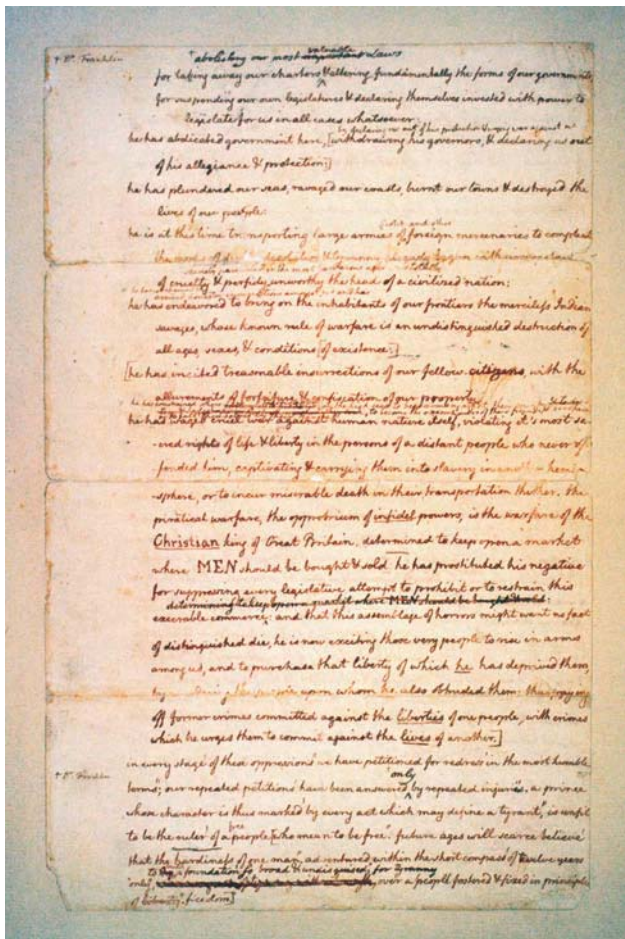 abolishing our most important valuable Laws
+ Dr. Franklin
for taking away our charters & altering fundamentally the forms of our governments,
for suspending our own legislatures & declaring themselves invested with power to
legislate for us in all cases whatsoever:
by declaring us out of his protection & waging war against us
he has abdicated government here, [withdrawing his governors, & declaring us out
of his allegiance & protection:]
he has plundered our seas, ravaged our coasts, burnt our towns & destroyed the
lives of our people:
Scotch and other
he is at this time transporting large armies of foreign mercenaries to compleat
the works of death desolation & tyranny already begun with circumstances
scarcely paralleled in the most barbarous ages & totally
of cruelty & perfidy unworthy the head of a civilized nation:
he has endeavored to bring on the inhabitants of our frontiers the merciless Indian
savages, whose known rule of warfare is an undistinguished destruction of
all ages, sexes, & conditions [of existence:]
[he has incited treasonable insurrections of our fellow citizens, with the
allurements of forfeiture & confiscation of our property:
he has waged cruel war against human nature itself, violating it's most sa-
-cred rights of life & liberty in the persons of a distant people who never of-
fended him, captivating & carrying them into slavery in another hemi-
-sphere, or to incur miserable death in their transportation thither. this
piratical warfare, the opprobrium of infidel powers, is the warfare of the
Christian king of Great Britain. determined to keep open a market
where MEN should be bought & sold he has prostituted his negative
for suppressing every legislative attempt to prohibit or to restrain this
determining to keep open a market where MEN should be bought & sold:
execrable commerce: and that this assemblage of horrors might want no fact
of distinguished die, he is now exciting those very people to rise in arms
among us, and to purchase that liberty of which he has deprived them,
by murdering the people upon whom he also obtruded them: thus paying
off former crimes committed against the liberties of one people, with crimes
which he urges them to commit against the lives of another.]
in every stage of these oppressions we have petitioned for redress in the most humble
+ Dr. Franklin
only
terms; our repeated petitions have been answered by repeated injuries. a prince
whose character is thus marked by every act which may define a tyrant, is unfit
free
to be the ruler of a people [who mean to be free. future ages will scarce believe
that the hardiness of one man, adventured within the short compass of twelve years
to lay a foundation so broad & undisguised, for tyranny
only, over a people fostered & fixed in principles
of liberty. freedom]